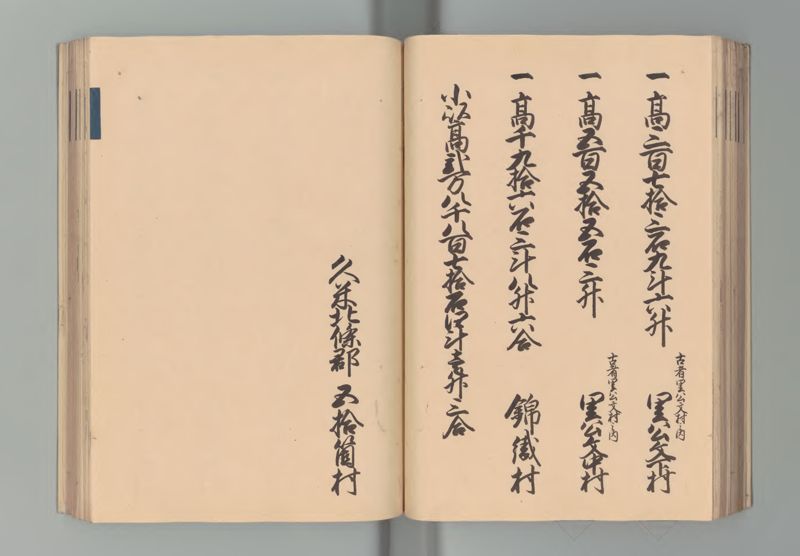 一高三百七拾三石九斗六升
古者里公文村之内
里公文下村
一高五百五拾五石三升
古者里公文村之内
里公文中村
一高千九拾六石三斗八升六合
錦織村
小以高弐万八千八百七拾石四斗壱升三合
久米北條郡 五拾箇村